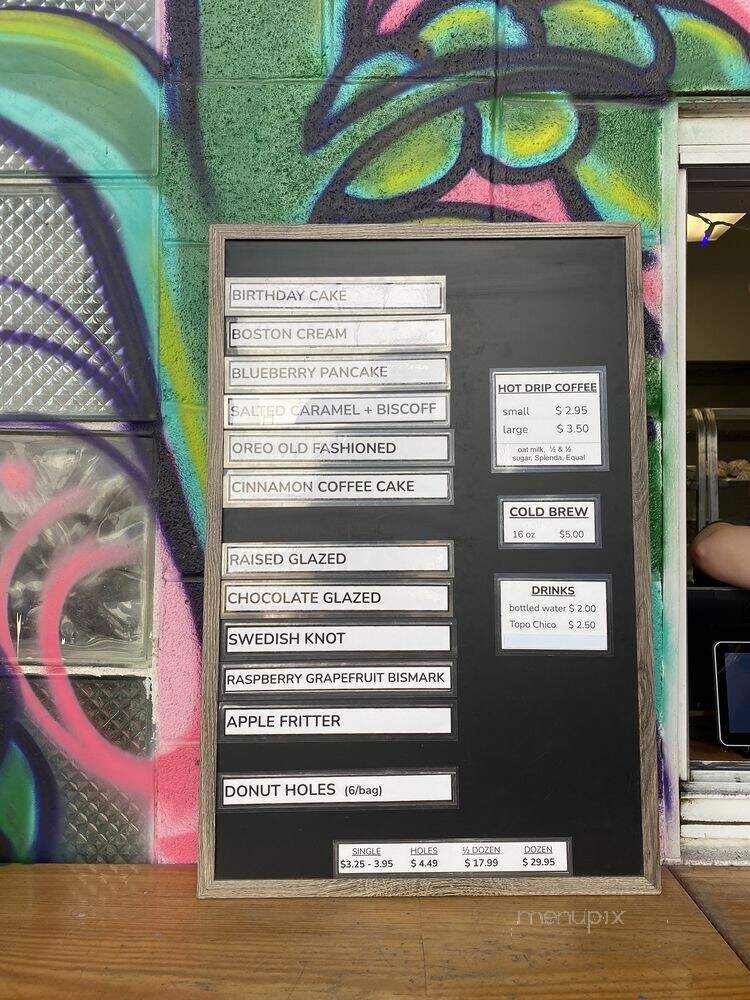 BIRTHDAY CAKE
BOSTON CREAM
BLUEBERRY PANCAKE
SALTED CARAMEL + BISCOFF
OREO OLD FASHIONED
CINNAMON COFFEE CAKE
RAISED GLAZED
CHOCOLATE GLAZED
SWEDISH KNOT
RASPBERRY GRAPEFRUIT BISMARK
APPLE FRITTER
DONUT HOLES (6/bag)
HOT DRIP COFFEE
small $ 2.95
large $ 3.50
oat milk, ½ & ½
sugar, Splenda, Equal
COLD BREW
16 oz $5.00
DRINKS
bottled water $ 2.00
Topo Chico $ 2.50
SINGLE HOLES ½ DOZEN DOZEN
$3.25 - 3.95 $ 4.49 $ 17.99 $ 29.95
menupix